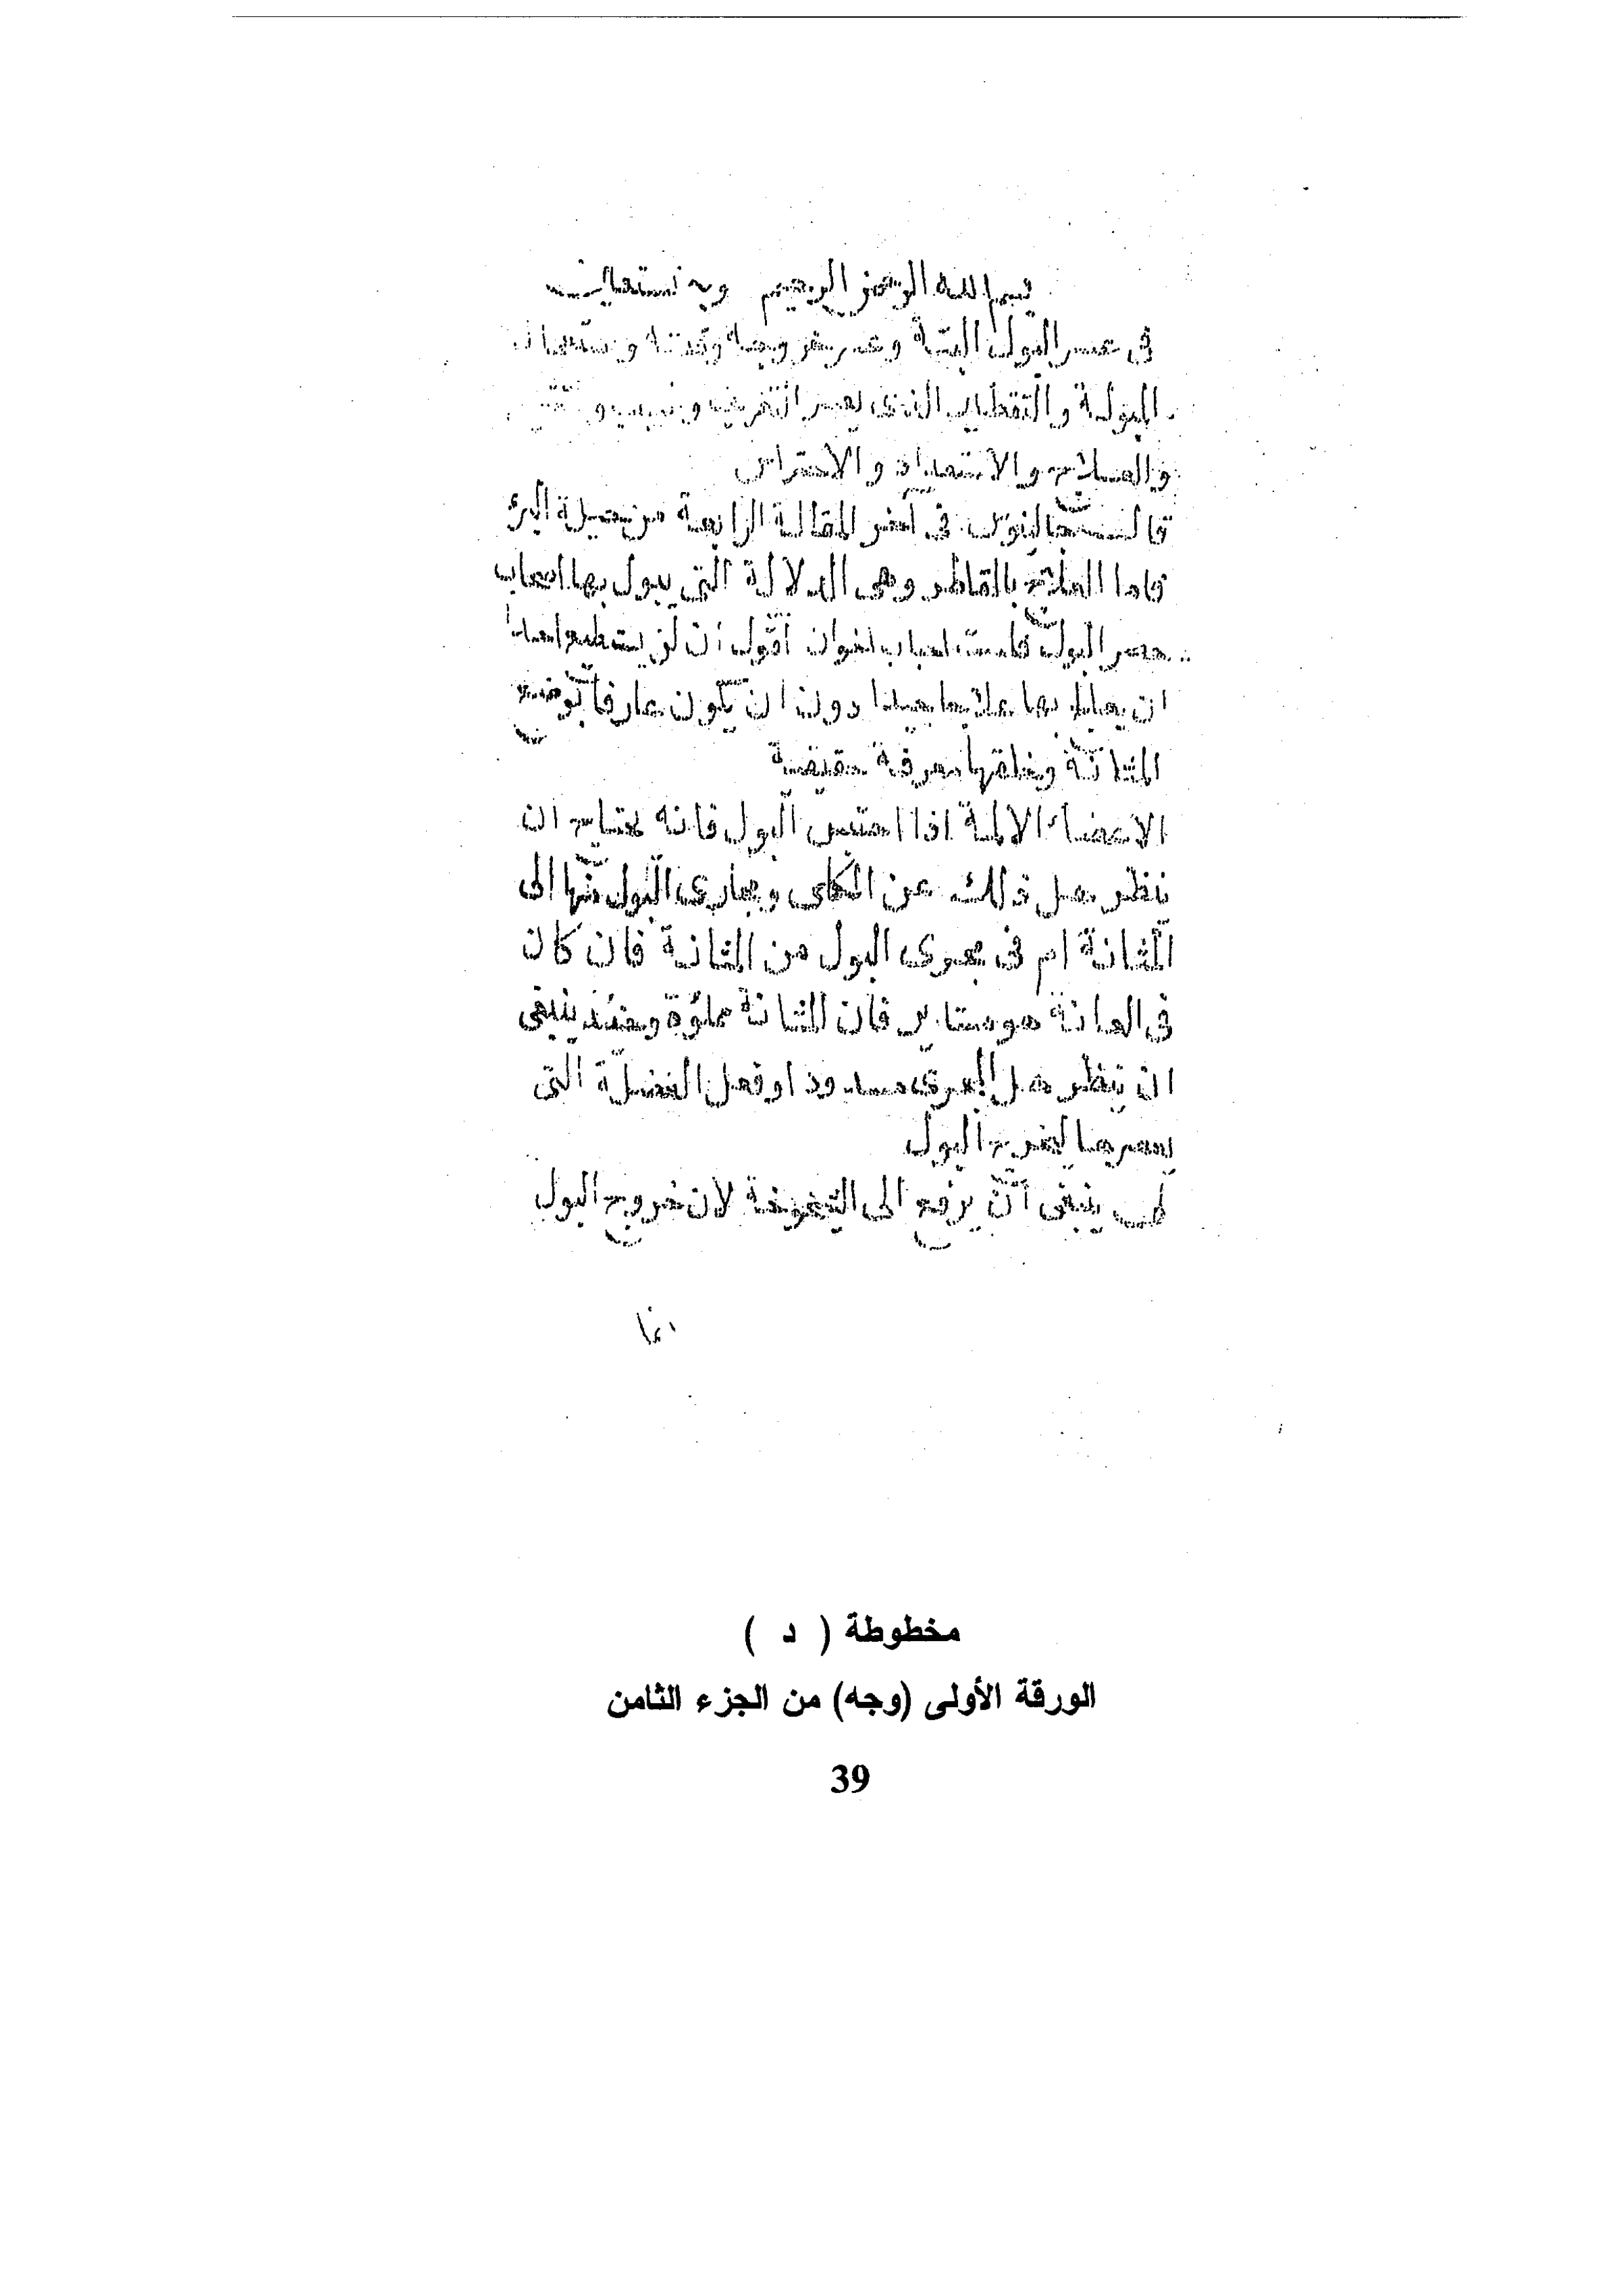 بسم الله الرحمن الرحيم وبه نستعين
في عسر البول البتة وعسر خروجه
البولة والتقطير الذي
والعلاج والاستعداد والاحتراس
قال جالينوس في اخر المقالة الرابعة من حيلة البرء
فاما العلاج بالقاطر وهى الدلالة التي يبول بها اصحاب
حصر البول اقول ان لن يستطيع احدا
ان يعالج بها علاجا جيدا دون ان يكون عارفا بوضع
المثانة وخلقها معرفة حقيقية
الاعضاء الالمة اذا احتبس البول فانه يحتاج ان
ينظر هل ذلك عن الكلى ومجارى البول منها الى
المثانة ام في مجرى البول من المثانة فان كان
في العانة فان المثانة مملؤة وحينئذ ينبغى
ان ينظر هل المجرى مسدود او فعل العضلة التى
يعصرها ليخرج البول
ينبغى ان يرفع الى لان خروج البول
انما
مخطوطة ( د )
الورقة الأولى (وجه) من الجزء الثامن
39